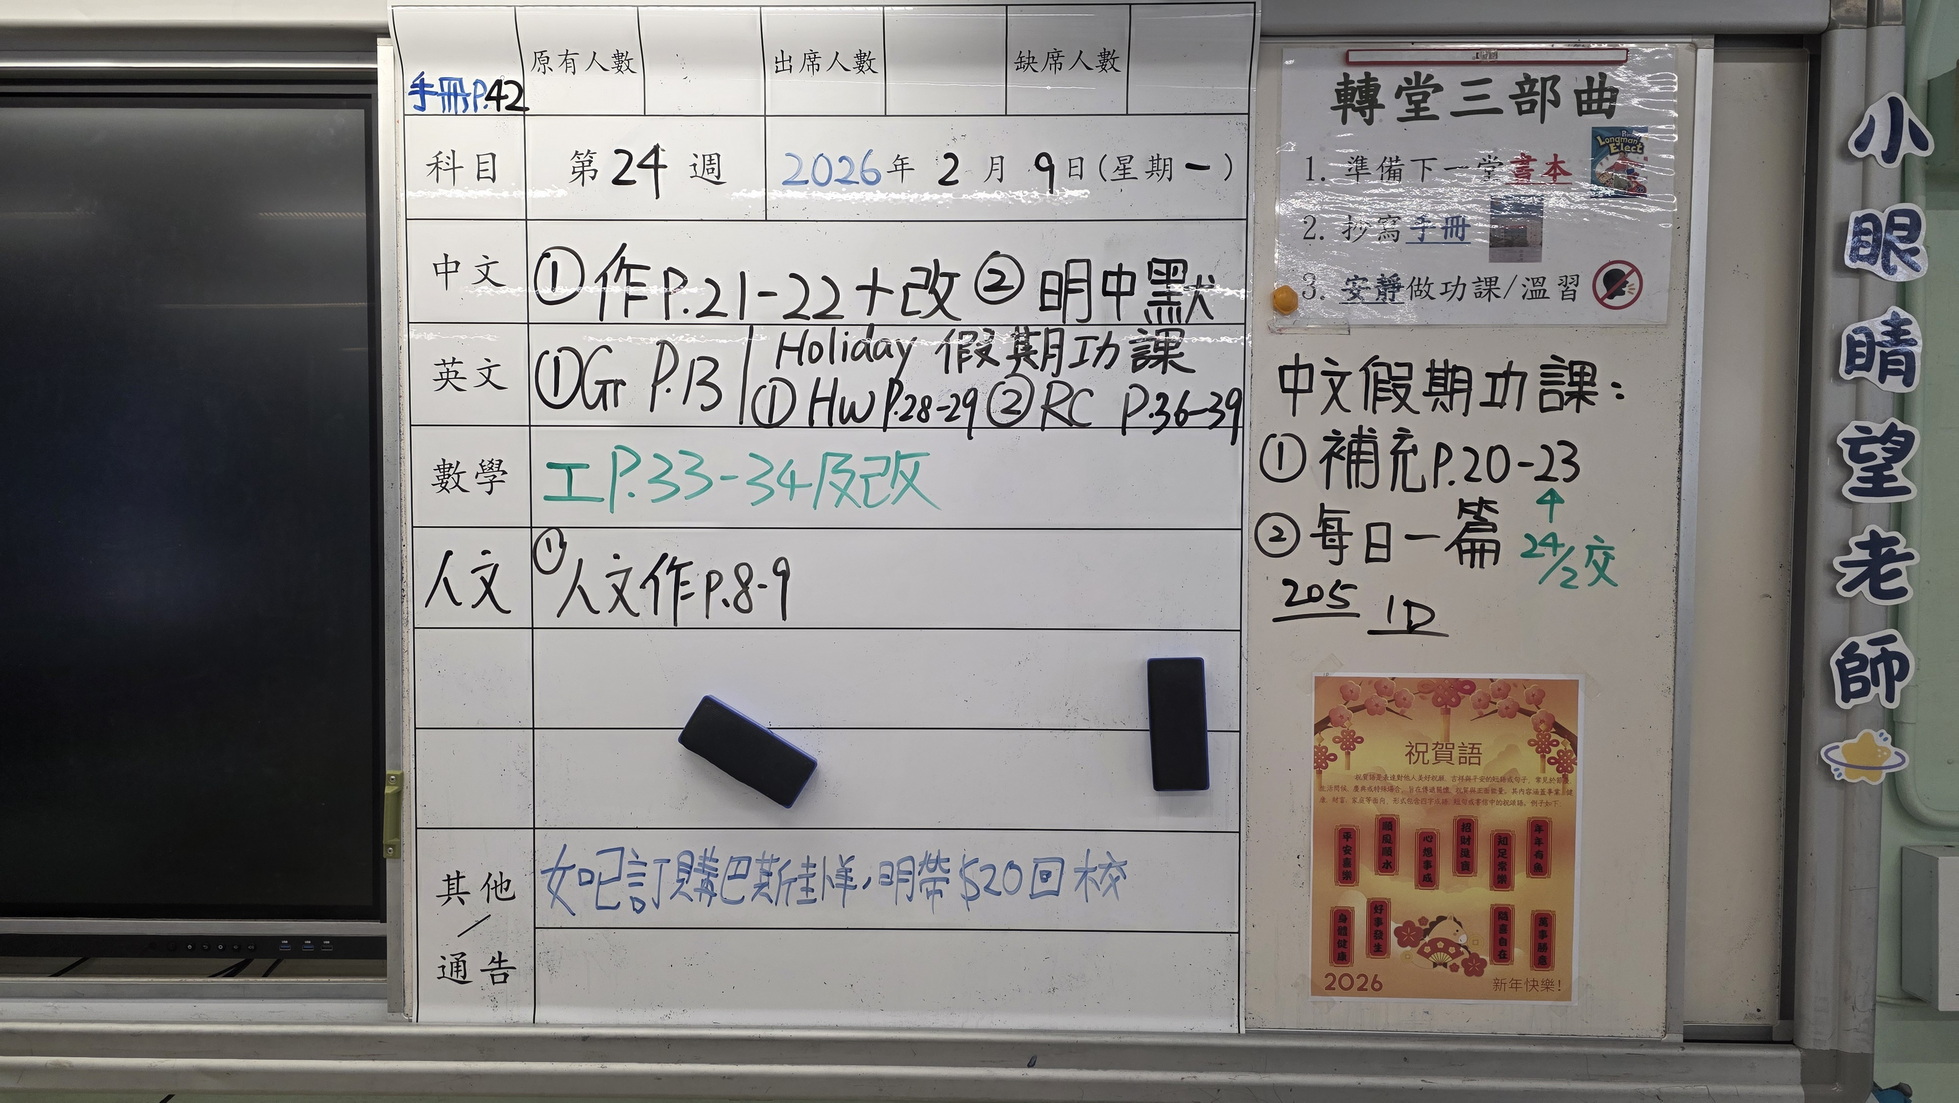 原有人數 出席人數 缺席人數
手冊P.42
科目 第24週 2026年2月9日(星期一)
中文 ①作P.21-22+改 ②明中默
英文 ①Gr P.13 Holiday 假期功課
①HW P.28-29 ②RC P.36-39
數學 工P.33-34及改
人文 ①人文作P.8-9
其他/通告 如已訂購巴斯卦慊,明帶$20回校
轉堂三部曲
1. 準備下一堂書本
Longman Elect
2. 抄寫手冊
3. 安靜做功課/溫習
中文假期功課:
①補充P.20-23
②每日一篇 24/2交
205 1D
祝賀語
平安喜樂
順風順水
心想事成
招財進寶
知足常樂
年年有魚
身體健康
好事發生
隨喜自在
萬事勝意
2026 新年快樂!
小眼睛望老師